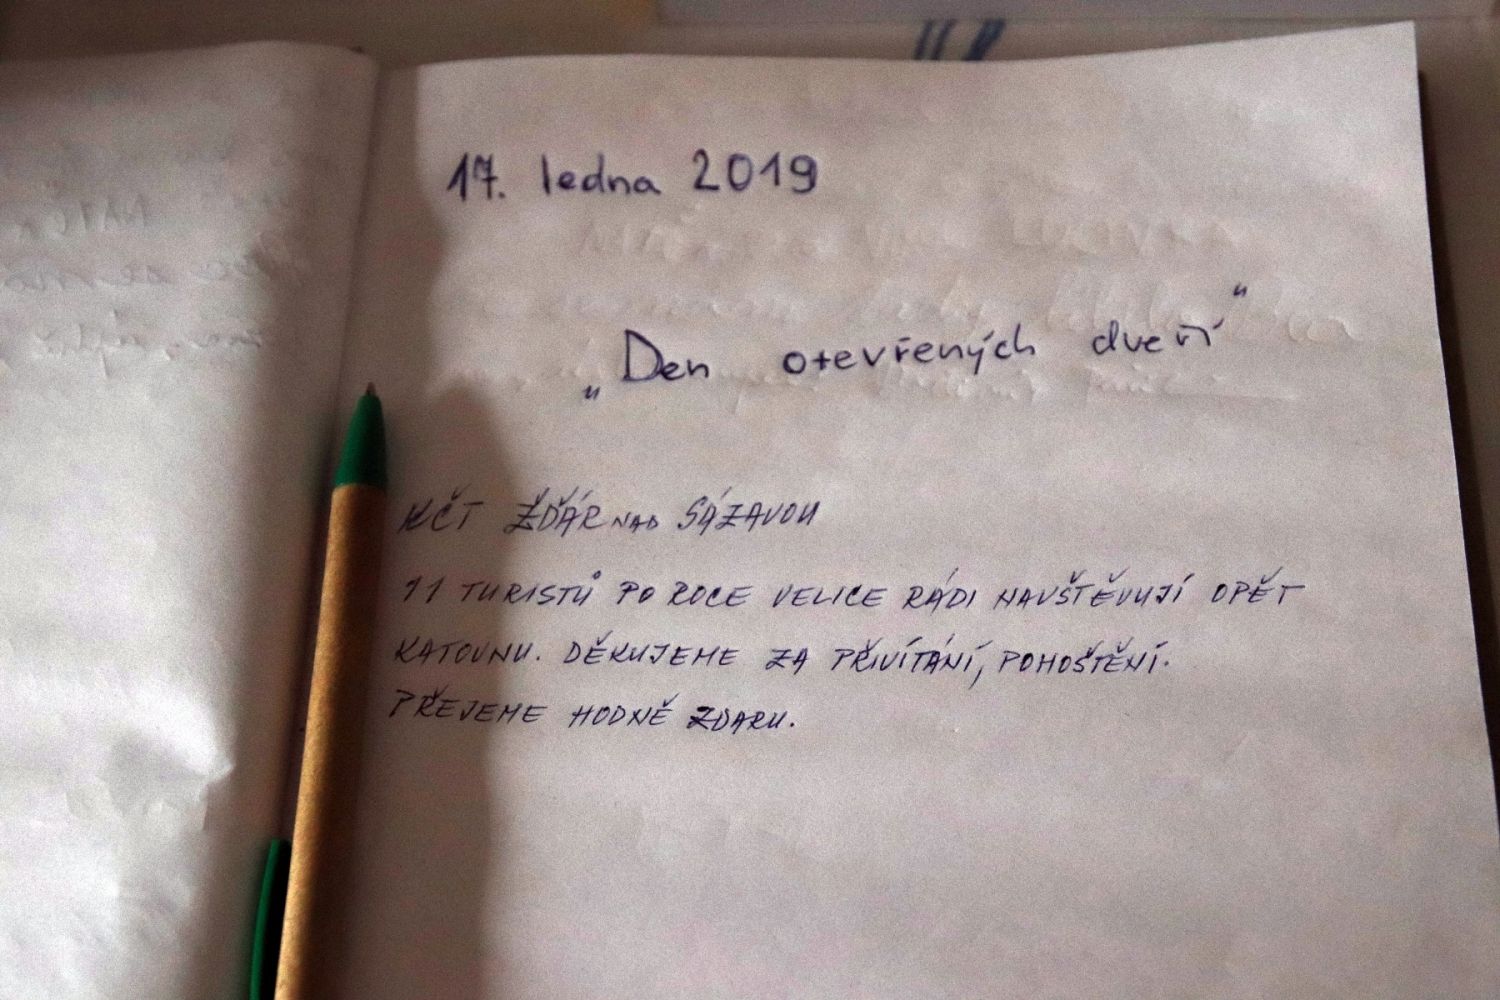 17. ledna 2019
„Den otevřených dveří"
KČT ŽĎÁR NAD SÁZAVOU
11 TURISTŮ PO ROCE VELICE RÁDI NAVŠTĚVUJÍ OPĚT
KATOVNU. DĚKUJEME ZA PŘIVÍTÁNÍ, POHOŠTĚNÍ.
PŘEJEME HODNĚ ZDARU.